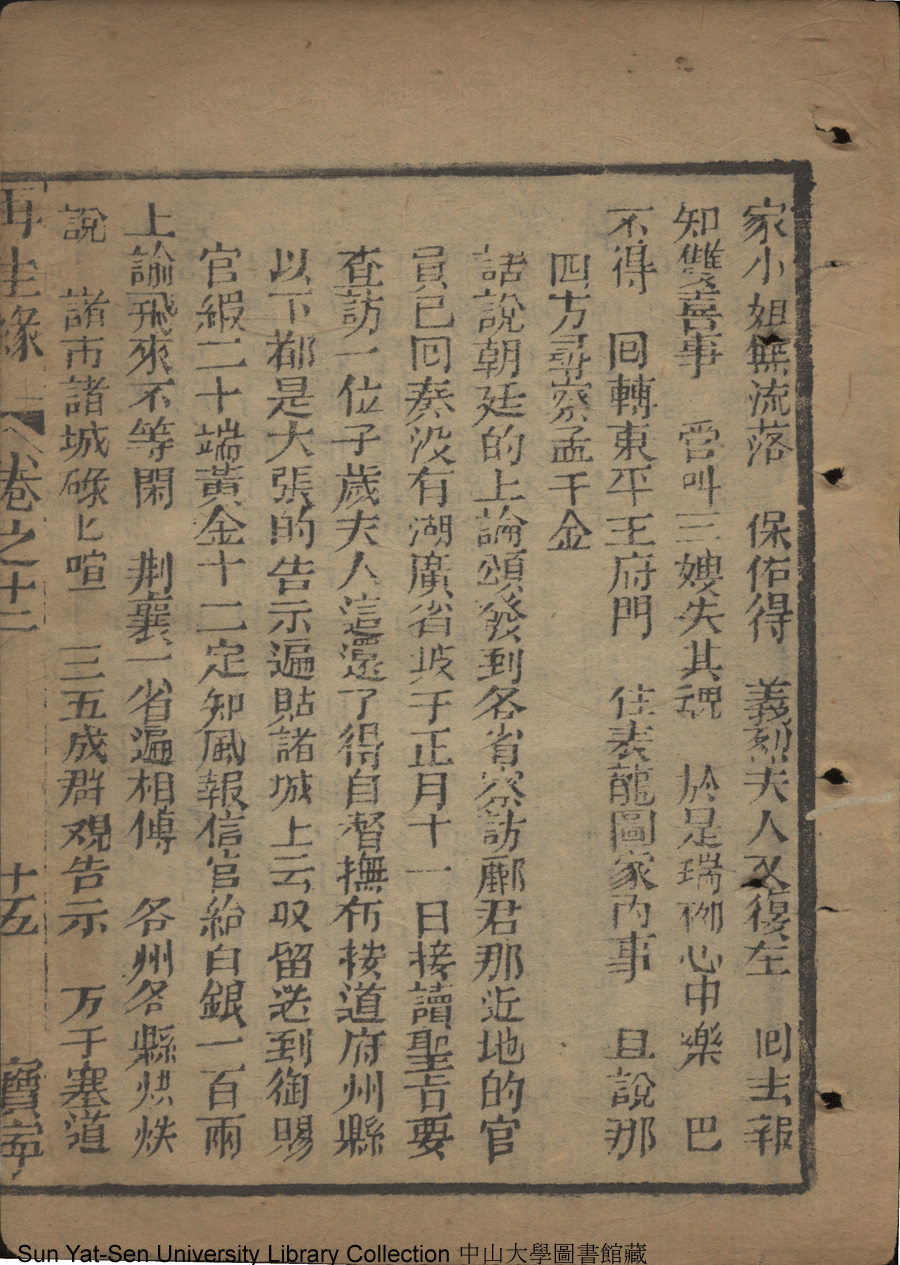 家小姐無流落　保佑得　義烈夫人又復在　回去報
知雙喜事　管叫三嫂失其魂　於是瑞柳心中樂　巴
不得　回轉東平王府門　住表龍圖家內事　且說那
四方尋察孟千金
話說朝廷的上諭頒發到各省察訪酈君那近地的官
員已回奏没有湖廣省坡于正月十一日接讀聖旨要
查訪一位子歲夫人這還了得自督撫布按道府州縣
以下都是大張的告示遍貼諸城上云収留送到御賜
官緞二十端黃金十二定知風報信官給白銀一百兩
上諭飛來不等閑　荆襄一省遍相傳　各州各縣烘烘
說　諸市諸城碌匕喧　三五成群观告示　万千塞道
再生緣　卷之十二　十五　寶寧
Sun Yat-Sen University Library Collection 中山大學圖書館藏